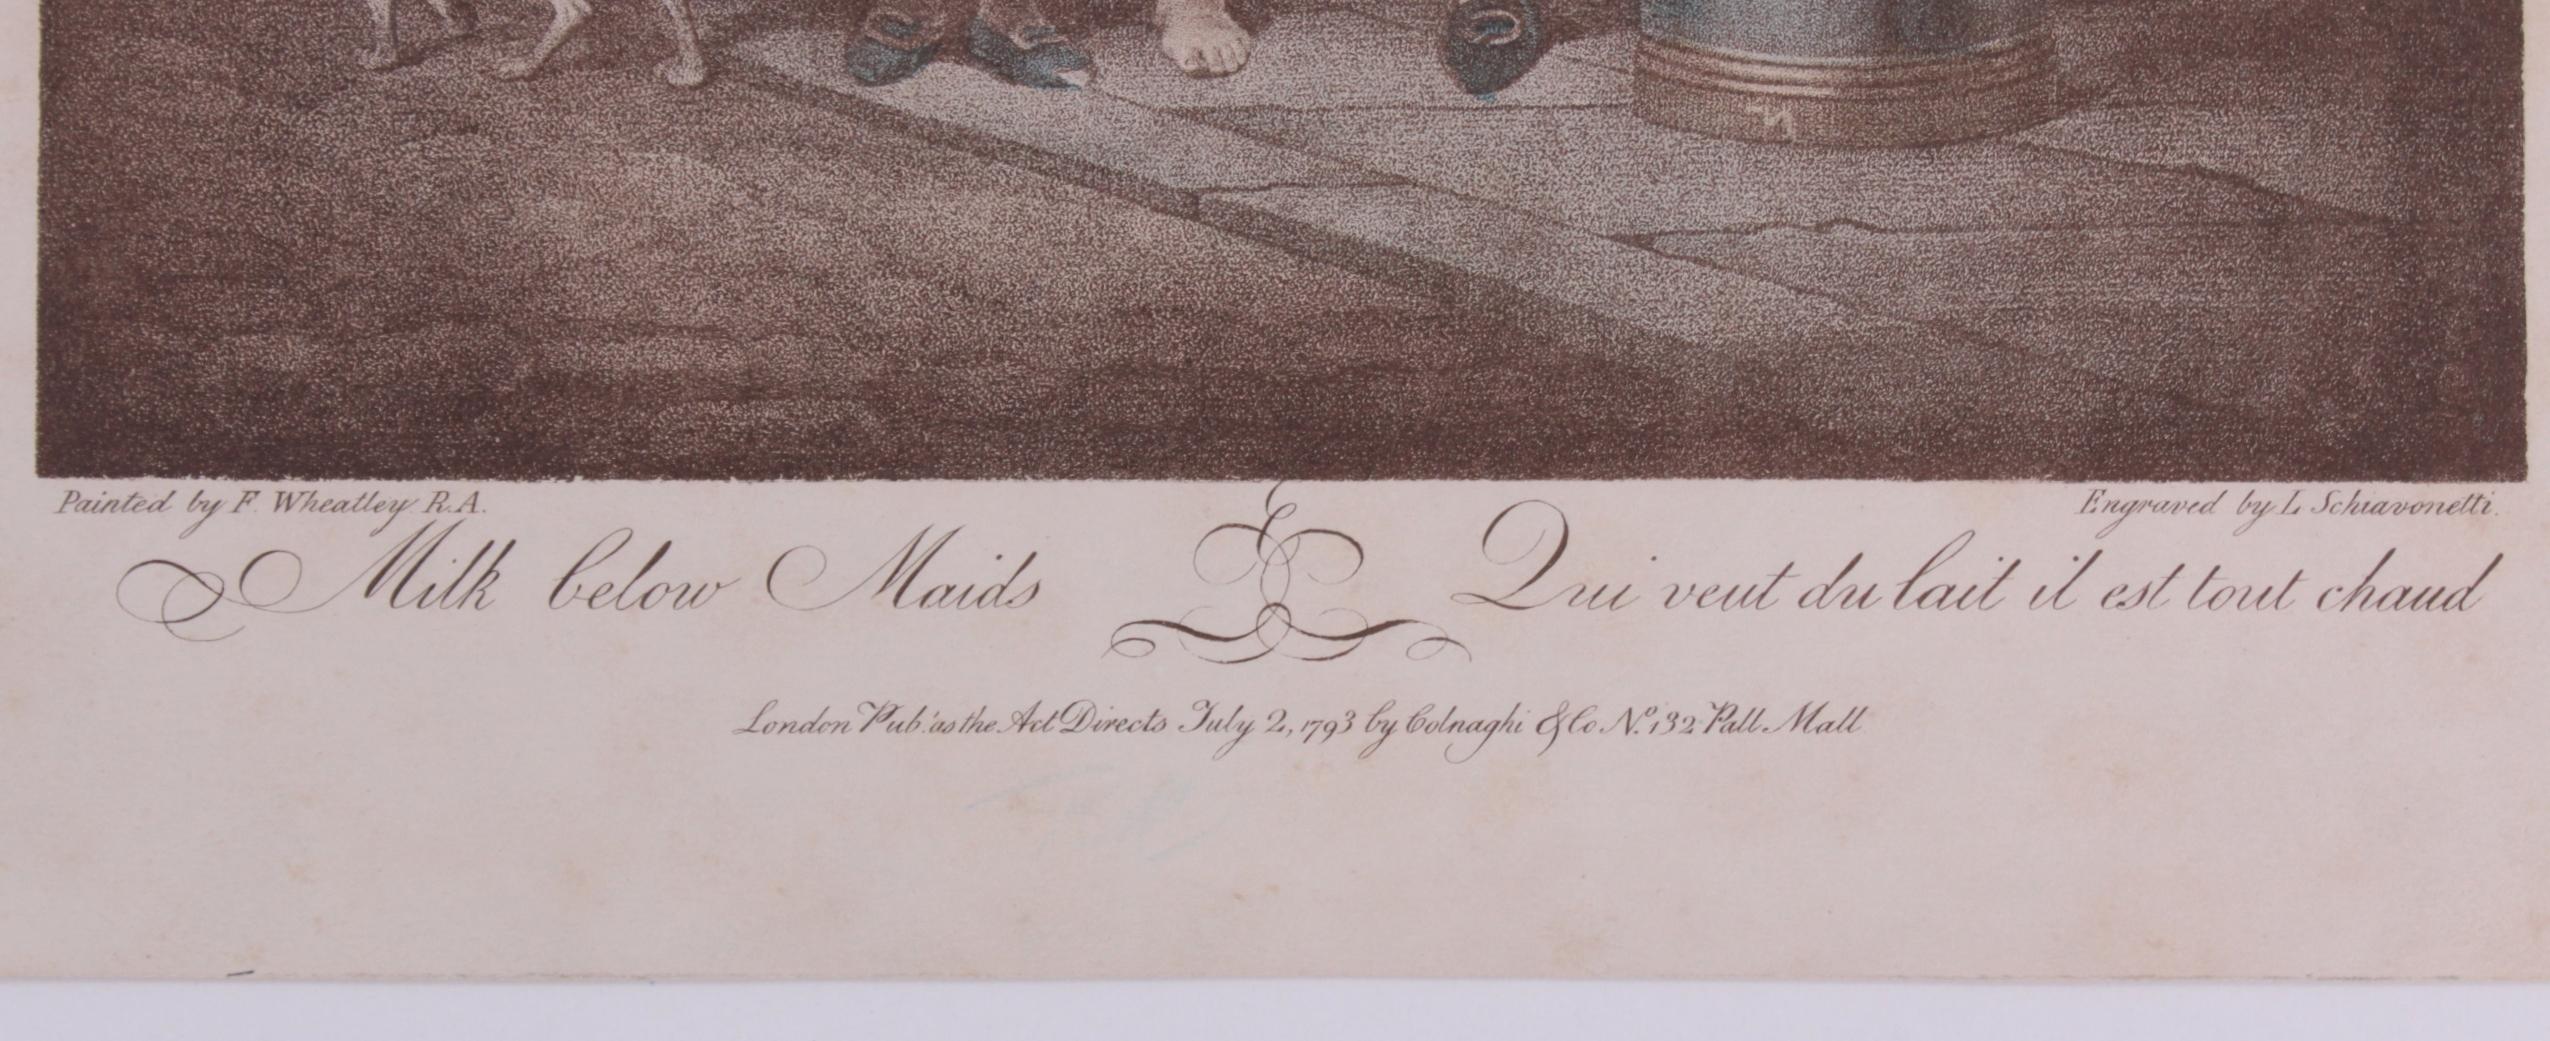 Painted by F. Wheatley R.A.
Engraved by L Schiavonetti.
Milk below Maids
Qui veut du lait il est tout chaud
London Pub. as the Act Directs July 2, 1793 by Colnaghi & Co. No. 132 Pall Mall